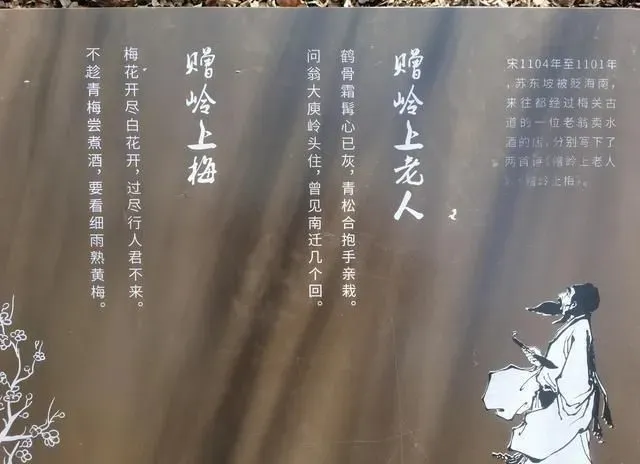 宋1104年至1101年
,苏东坡被贬海南,
来往都经过梅关古
道的一位老翁卖水
酒的店,分别写下了
两首诗《赠岭上老人
》《赠岭上梅》。
赠岭上老人
鹤骨霜髯心已灰,青松合抱手亲栽。
问翁大庾岭头住,曾见南迁几个回。
赠岭上梅
梅花开尽白花开,过尽行人君不来。
不趁青梅尝煮酒,要看细雨熟黄梅。